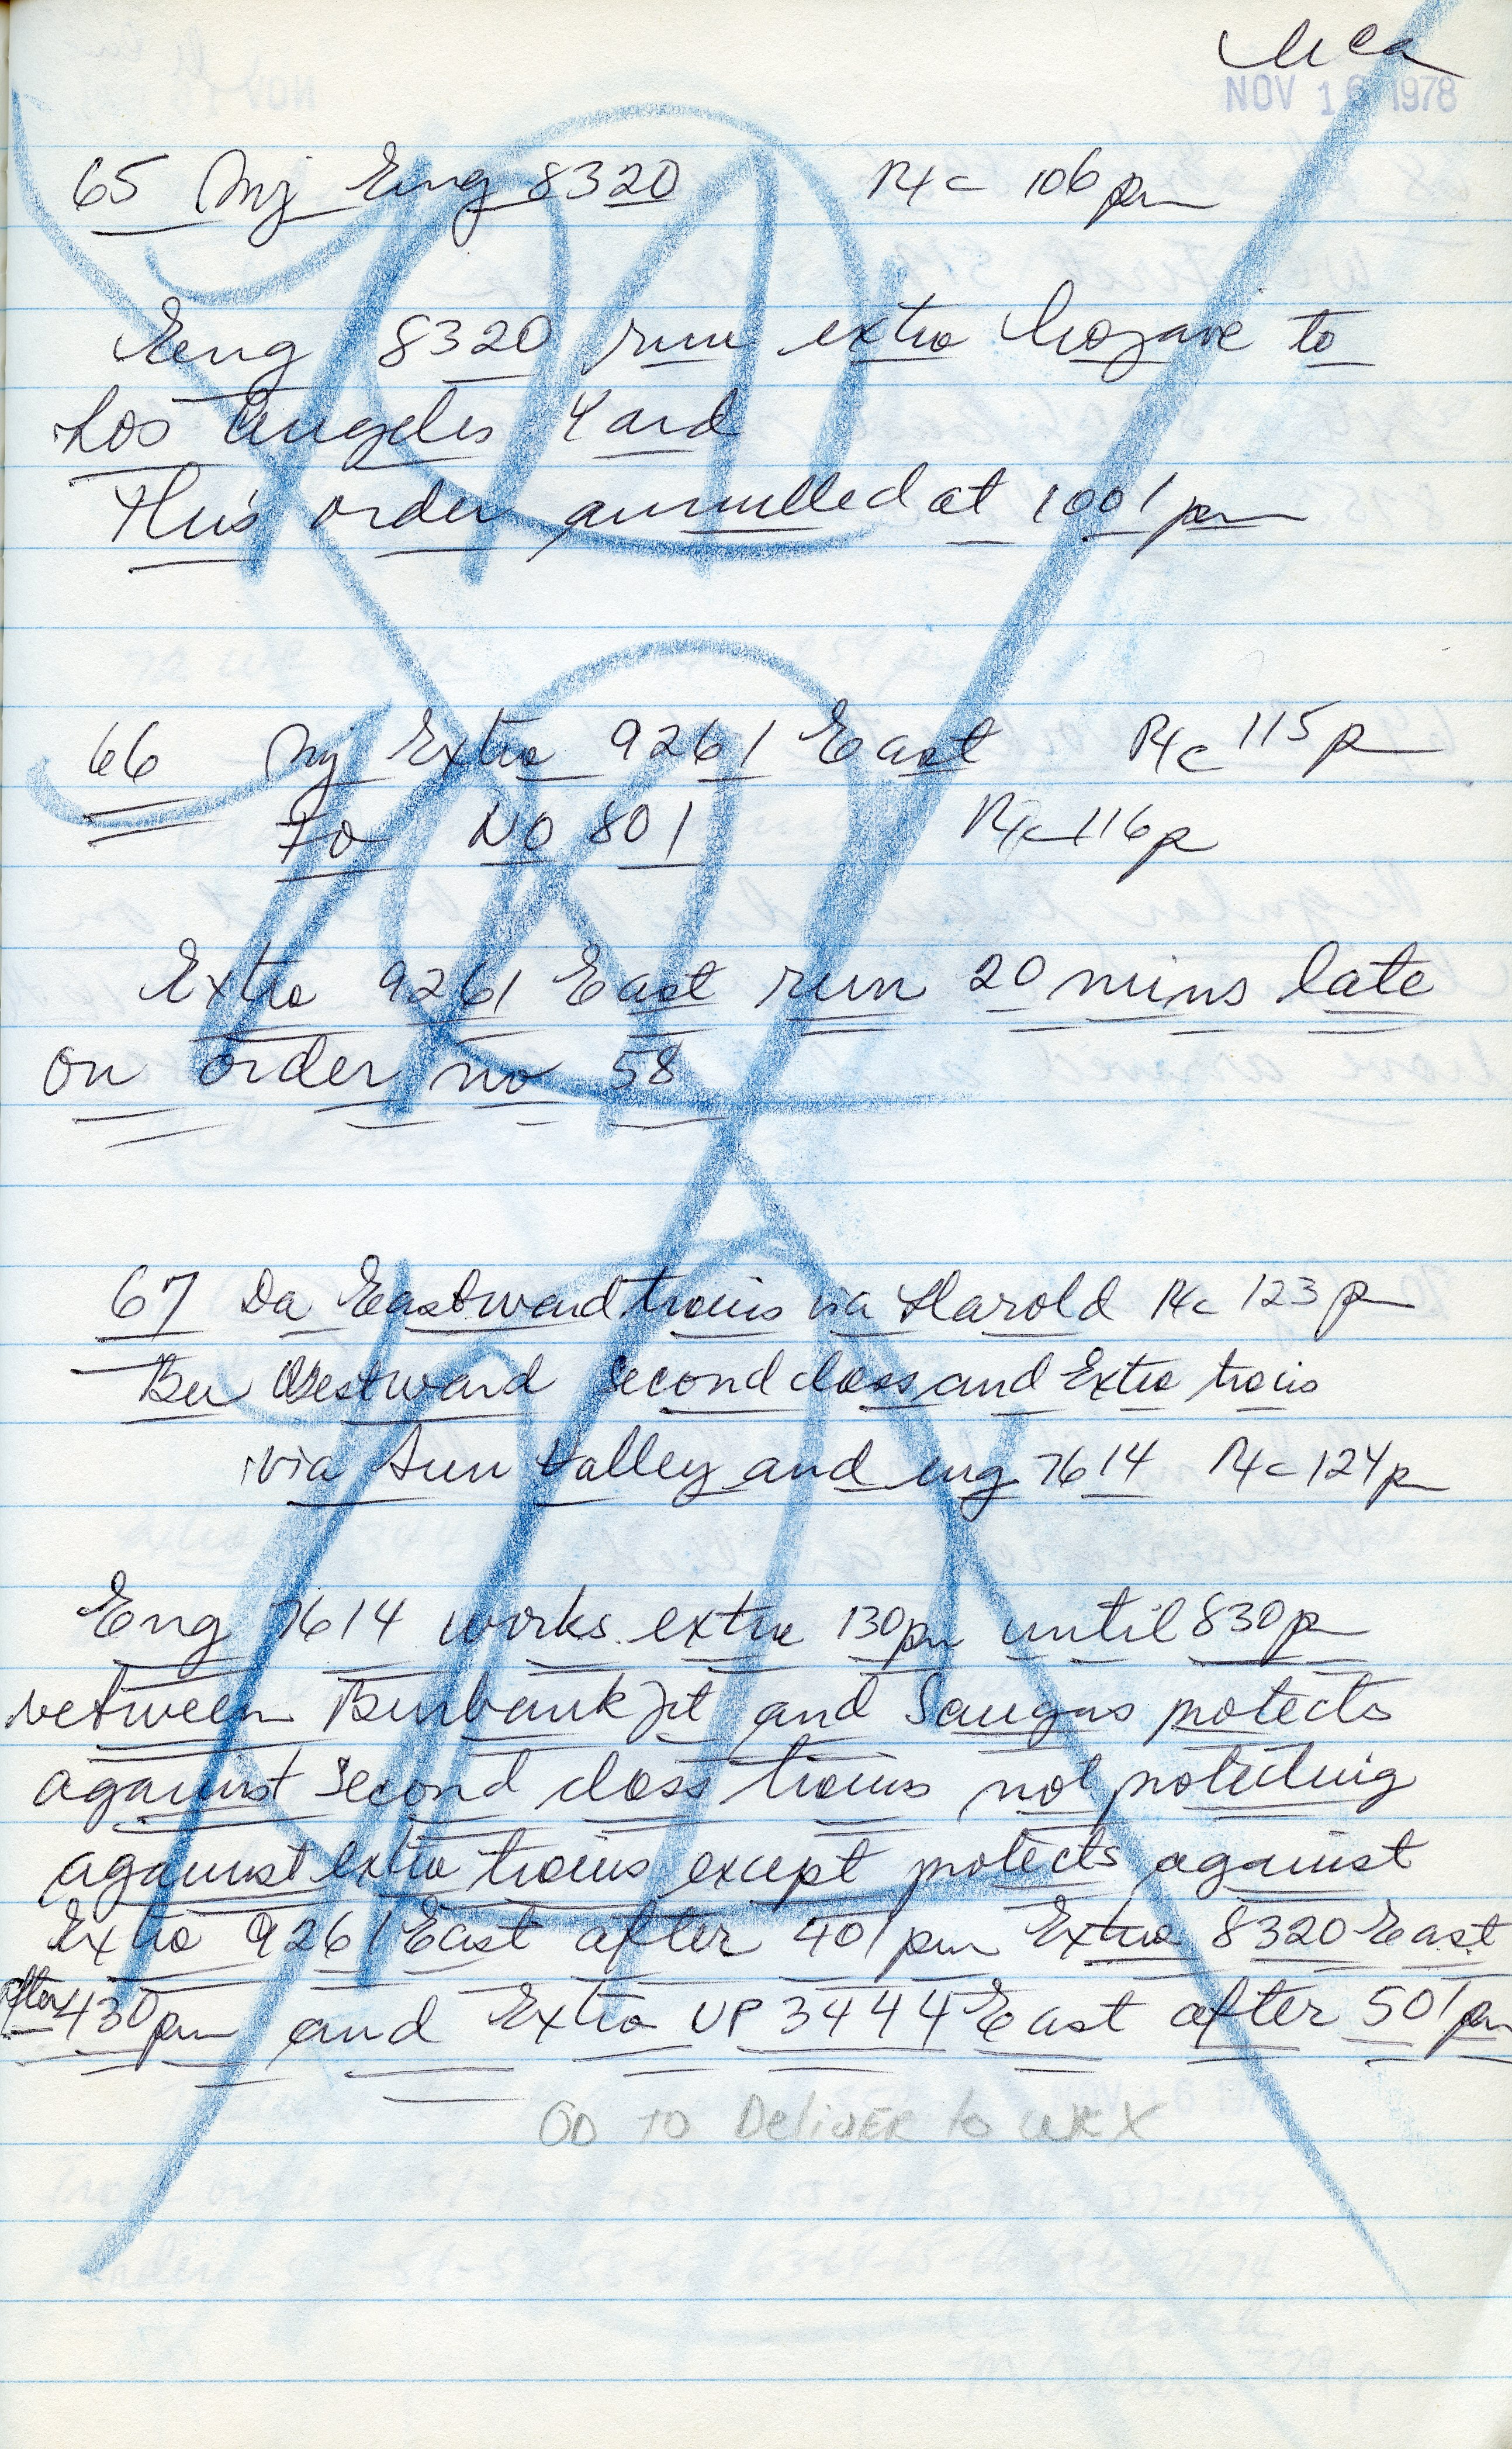 NOV 16 1978
65 Mj Eng 8320 RHC 106 pm
Eng 8320 run extra Mojave to
Los Angeles Yard
This order annulled at 1001 pm
66 Mj Extra 9261 East RHC 115 p
Fo No 801 RHC 116 p
Extra 9261 East run 20 mins late
on order no 58
67 Da Eastward trains via Harold RHC 123 p
Bu Westward second class and Extra trains
via Sun Valley and eng 7614 RHC 124 p
Eng 7614 works extra 130 pm until 830 p
between Burbank Jct and Saugus protects
against second class trains not protecting
against extra trains except protects against
Extra 9261 East after 401 pm Extra 8320 East
after 430 pm and Extra UP 3444 East after 501 pm
OD TO DeliVER to WRK X